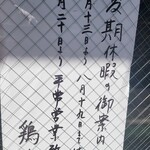 夏期休暇の御案内
月十三日より八月十九日まで
月二十日より平常営業致
鶏